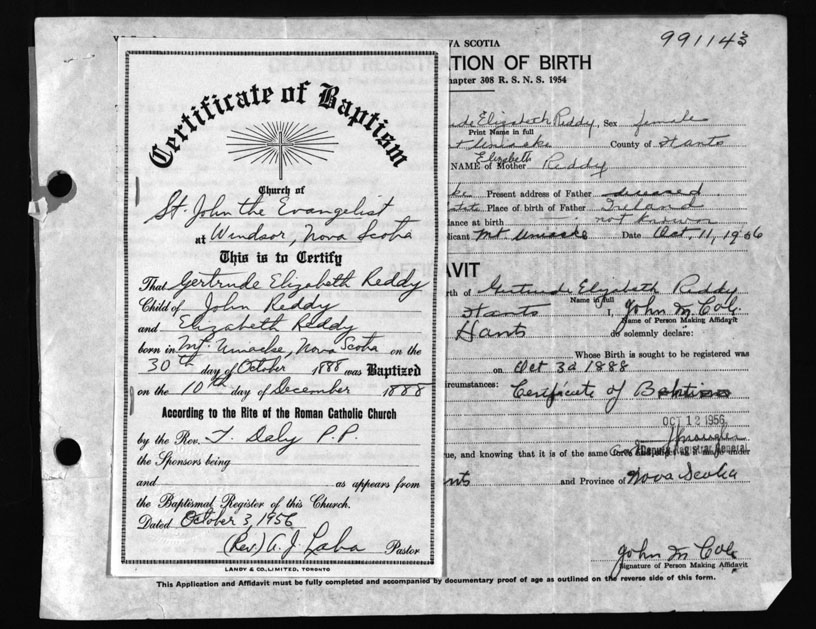 Certificate of Baptism
Church of
St. John the Evangelist
at Windsor, Nova Scotia
This is to Certify
That Gertrude Elizabeth Reddy
Child of John Reddy
and Elizabeth Reddy
born in Mt. Uniacke, Nova Scotia on the
30th day of October 1888 was Baptized
on the 10th day of December 1888
According to the Rite of the Roman Catholic Church
by the Rev. T. Daly P.P.
the Sponsors being
and as appears from
the Baptismal Register of this Church.
Dated October 3, 1956
(Rev.) A. J. Pastor
LANDY & CO., LIMITED, TORONTO
VA SCOTIA
991143
TION OF BIRTH
hapter 308 R. S. N. S. 1954
ude Elizabeth Reddy, Sex female
Print Name in full
t Uniacke County of Hants
Elizabeth
NAME of Mother Reddy
ke Present address of Father deceased
Place of birth of Father Ireland
dance at birth not known
licant Mt Uniacke Date Oct. 11, 1956
AVIT
rth of Gertrude Elizabeth Reddy
Name in full
Hants I, John M. Cole
Name of Person Making Affidavit
Hants do solemnly declare:
Whose Birth is sought to be registered was
on Oct 30 1888
circumstances: Certificate of Baptism
OCT 12 1956
Deputy Registrar General
ue, and knowing that it is of the same force made under
nts and Province of Nova Scotia
John M Cole
Signature of Person Making Affidavit
This Application and Affidavit must be fully completed and accompanied by documentary proof of age as outlined on the reverse side of this form.